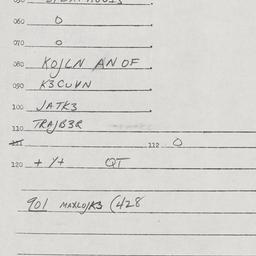 060 0
070 0
080 KO/LN AN OF
090 K3CUVN
100 JATK3
110 TRA/B3R
111 112 0
120 + Y+ QT
901 MAXLO/K3 (428